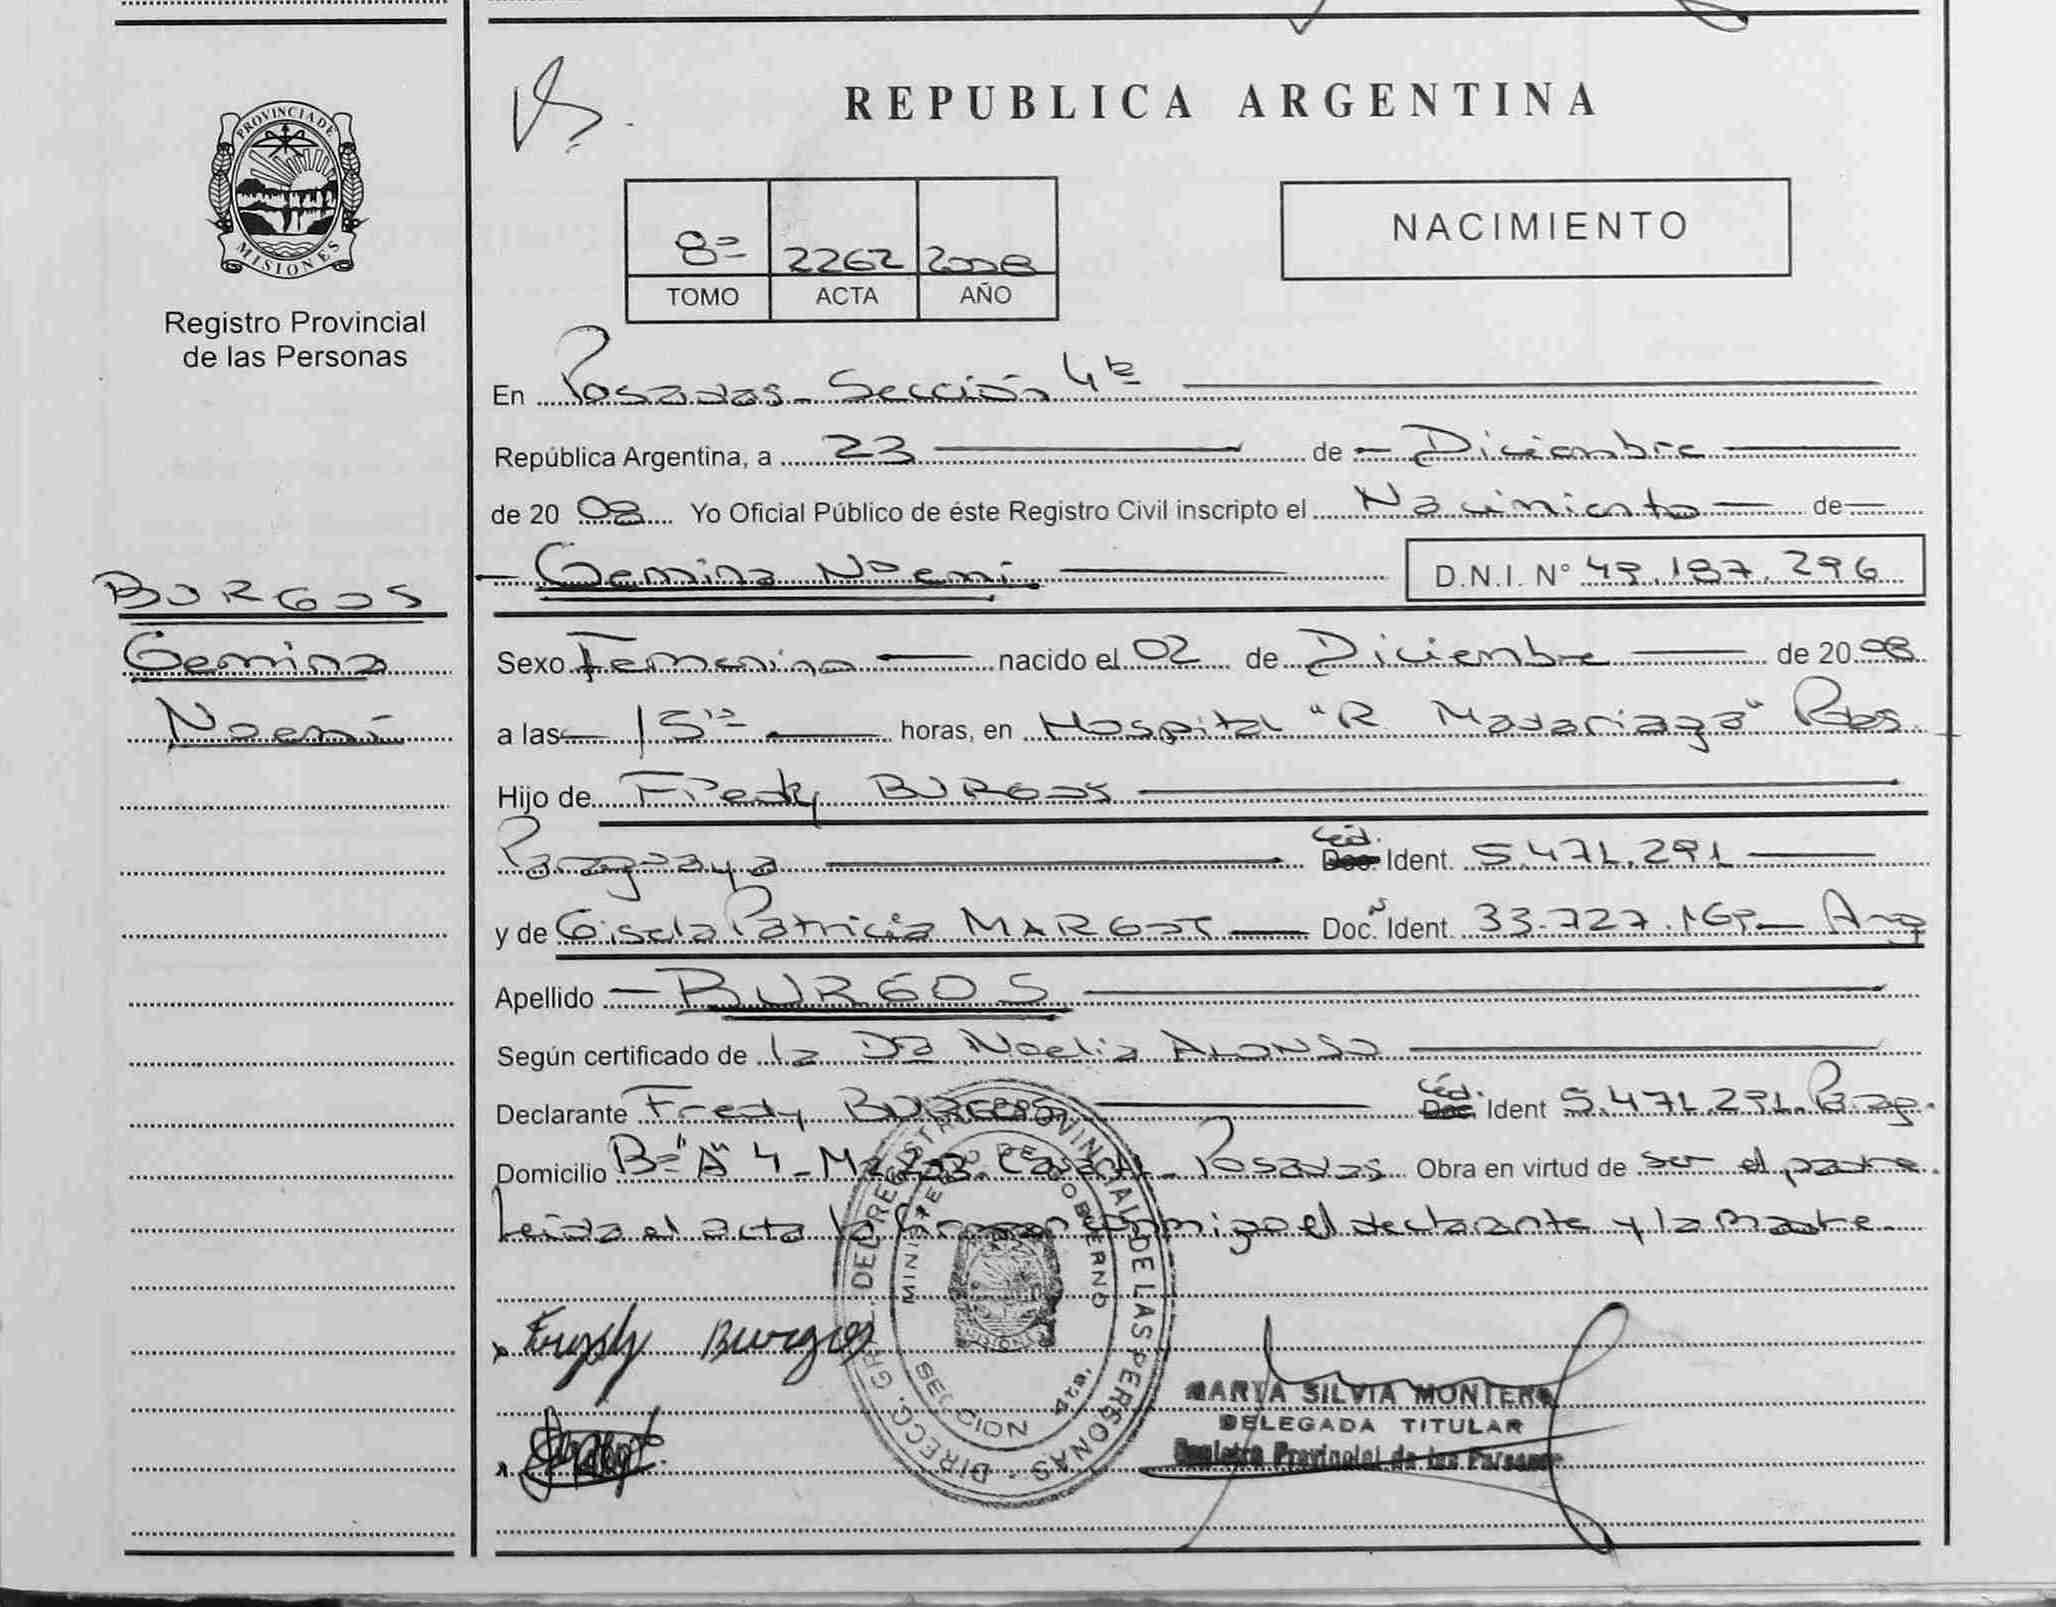 REPUBLICA ARGENTINA
PROVINCIA DE MISIONES
Registro Provincial
de las Personas
8º 2262 2008
TOMO ACTA AÑO
NACIMIENTO
En Posadas - Sección 4ta
República Argentina, a 23 de Diciembre
de 20 08 Yo Oficial Público de éste Registro Civil inscripto el Nacimiento de
Gemina Noemi D.N.I. Nº 49.187.296
BURGOS
Gemina
Noemi
Sexo Femenino nacido el 02 de Diciembre de 20 08
a las horas, en Hospital "R Madariaga" Pdas.
Hijo de Fredy BURGOS
Paraguaya Céd. Ident. 5.471.291
y de Gisela Patricia MARGOS Doc. Ident. 33.727. Arg
Apellido BURGOS
Según certificado de la Dra Noelia ALONSO
Declarante Fredy BURGOS Céd. Ident 5.471.291. Parag.
Domicilio Bº "A" 4 - Posadas Obra en virtud de ser el padre.
Leida el acta la firman conmigo el declarante y la madre.
Fredy Burgos
DIRECC. GRAL. DEL REGISTRO PROVINCIAL DE LAS PERSONAS
MINISTERIO DE GOBIERNO
SECCION 4ta.
MARTA SILVIA MONTERO
DELEGADA TITULAR
Registro Provincial de las Personas